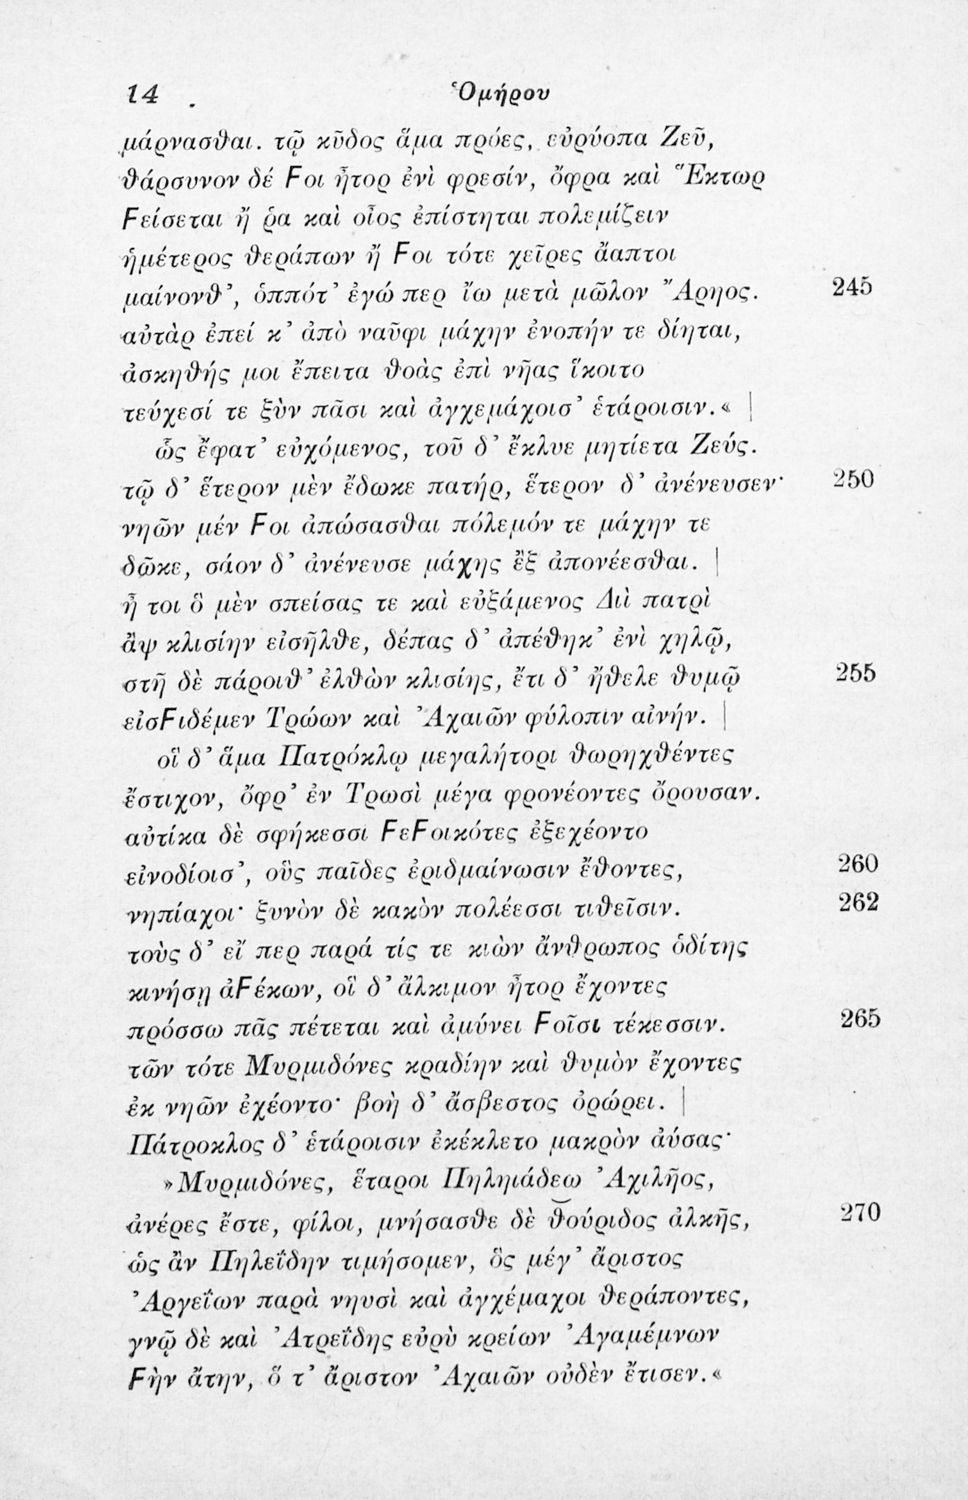 14 Ὁμήρου
μάρνασθαι. τῷ κῦδος ἅμα πρόες, εὐρύοπα Ζεῦ,
θάρσυνον δέ Ϝοι ἦτορ ἐνὶ φρεσίν, ὄφρα καὶ Ἕκτωρ
Ϝείσεται ἤ ῥα καὶ οἶος ἐπίστηται πολεμίζειν
ἡμέτερος θεράπων ἤ Ϝοι τότε χεῖρες ἄαπτοι
μαίνονθ’, ὁππότ’ ἐγώ περ ἴω μετὰ μῶλον Ἄρηος. 245
αὐτὰρ ἐπεί κ’ ἀπὸ ναῦφι μάχην ἐνοπήν τε δίηται,
ἀσκηθής μοι ἔπειτα θοὰς ἐπὶ νῆας ἵκοιτο
τεύχεσί τε ξὺν πᾶσι καὶ ἀγχεμάχοισ’ ἑτάροισιν.« |
ὣς ἔφατ’ εὐχόμενος, τοῦ δ’ ἔκλυε μητίετα Ζεύς.
τῷ δ’ ἕτερον μὲν ἔδωκε πατήρ, ἕτερον δ’ ἀνένευσεν· 250
νηῶν μέν Ϝοι ἀπώσασθαι πόλεμόν τε μάχην τε
δῶκε, σάον δ’ ἀνένευσε μάχης ἒξ ἀπονέεσθαι. |
ἦ τοι ὃ μὲν σπείσας τε καὶ εὐξάμενος Διὶ πατρὶ
ἂψ κλισίην εἰσῆλθε, δέπας δ’ ἀπέθηκ’ ἐνὶ χηλῷ,
στῆ δὲ πάροιθ’ ἐλθὼν κλισίης, ἔτι δ’ ἤθελε θυμῷ 255
εἰσϜιδέμεν Τρώων καὶ Ἀχαιῶν φύλοπιν αἰνήν. |
οἳ δ’ ἅμα Πατρόκλῳ μεγαλήτορι θωρηχθέντες
ἔστιχον, ὄφρ’ ἐν Τρωσὶ μέγα φρονέοντες ὄρουσαν.
αὐτίκα δὲ σφήκεσσι ϜεϜοικότες ἐξεχέοντο
εἰνοδίοισ’, οὓς παῖδες ἐριδμαίνωσιν ἔθοντες, 260
νηπίαχοι· ξυνὸν δὲ κακὸν πολέεσσι τιθεῖσιν. 262
τοὺς δ’ εἴ περ παρά τίς τε κιὼν ἄνθρωπος ὁδίτης
κινήσῃ ἀϜέκων, οἳ δ’ ἄλκιμον ἦτορ ἔχοντες
πρόσσω πᾶς πέτεται καὶ ἀμύνει Ϝοῖσι τέκεσσιν. 265
τῶν τότε Μυρμιδόνες κραδίην καὶ θυμὸν ἔχοντες
ἐκ νηῶν ἐχέοντο· βοὴ δ’ ἄσβεστος ὀρώρει. |
Πάτροκλος δ’ ἑτάροισιν ἐκέκλετο μακρὸν ἀύσας·
»Μυρμιδόνες, ἕταροι Πηληιάδεω Ἀχιλῆος,
ἀνέρες ἔστε, φίλοι, μνήσασθε δὲ θούριδος ἀλκῆς, 270
ὡς ἂν Πηλεΐδην τιμήσομεν, ὃς μέγ’ ἄριστος
Ἀργεΐων παρὰ νηυσὶ καὶ ἀγχέμαχοι θεράποντες,
γνῷ δὲ καὶ Ἀτρεΐδης εὐρὺ κρείων Ἀγαμέμνων
Ϝὴν ἄτην, ὅ τ’ ἄριστον Ἀχαιῶν οὐδὲν ἔτισεν.«